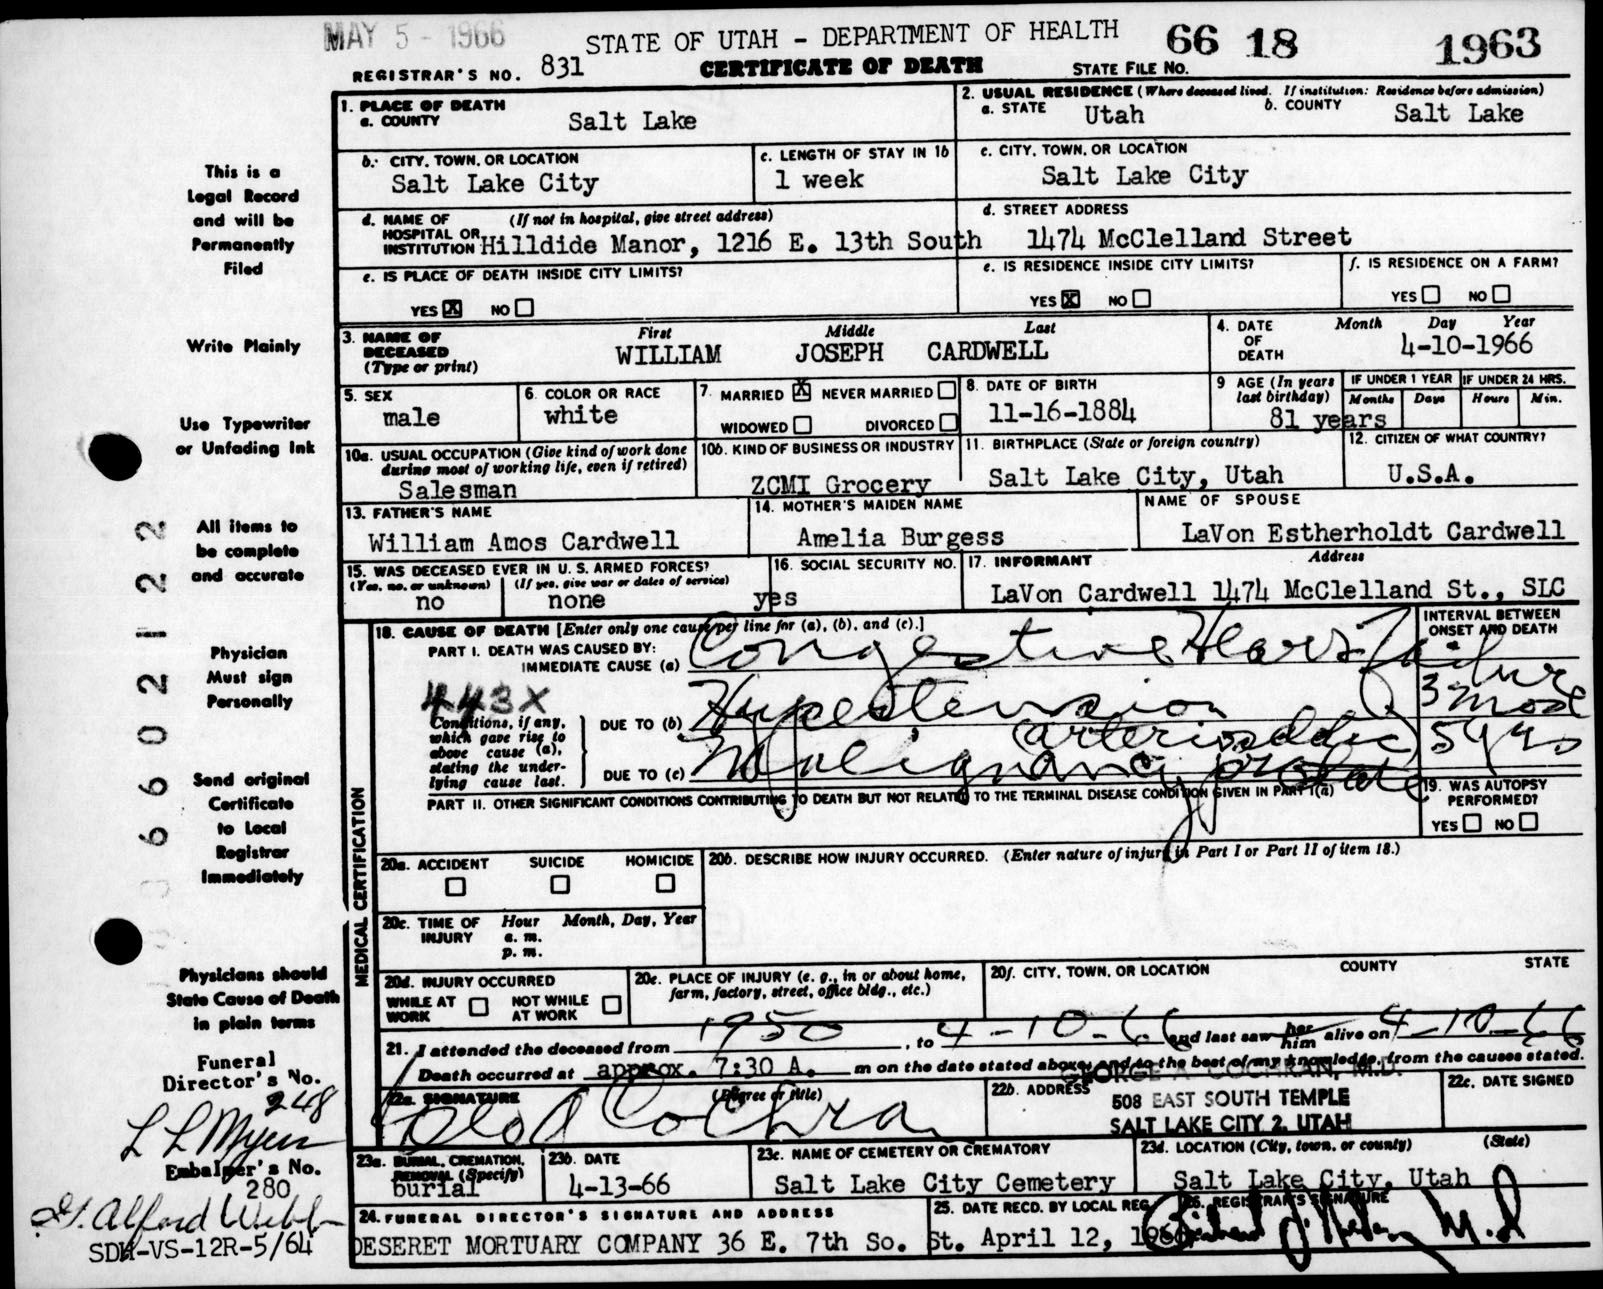 MAY 5 - 1966
STATE OF UTAH - DEPARTMENT OF HEALTH
66 18 1963
REGISTRAR'S NO. 831
CERTIFICATE OF DEATH
STATE FILE NO.
This is a
Legal Record
and will be
Permanently
Filed
Write Plainly
Use Typewriter
or Unfading Ink
All items to
be complete
and accurate
Physician
Must sign
Personally
Send original
Certificate
to Local
Registrar
Immediately
Physicians should
State Cause of Death
in plain terms
Funeral
Director's No.
248
L L Myers
Embalmer's No.
280
G. Alford Webb
SDH-VS-12R-5/64
36602122
1. PLACE OF DEATH
a. COUNTY Salt Lake
2. USUAL RESIDENCE (Where deceased lived. If institution: Residence before admission)
a. STATE Utah b. COUNTY Salt Lake
b. CITY, TOWN, OR LOCATION
Salt Lake City
c. LENGTH OF STAY IN 1b
1 week
c. CITY, TOWN, OR LOCATION
Salt Lake City
d. NAME OF HOSPITAL OR INSTITUTION (If not in hospital, give street address)
Hilldide Manor, 1216 E. 13th South
d. STREET ADDRESS
1474 McClelland Street
e. IS PLACE OF DEATH INSIDE CITY LIMITS?
YES X NO
e. IS RESIDENCE INSIDE CITY LIMITS?
YES X NO
f. IS RESIDENCE ON A FARM?
YES NO
3. NAME OF DECEASED (Type or print)
First Middle Last
WILLIAM JOSEPH CARDWELL
4. DATE OF DEATH
Month Day Year
4-10-1966
5. SEX
male
6. COLOR OR RACE
white
7. MARRIED X NEVER MARRIED
WIDOWED DIVORCED
8. DATE OF BIRTH
11-16-1884
9 AGE (In years last birthday)
81 years
IF UNDER 1 YEAR
Months Days
IF UNDER 24 HRS.
Hours Min.
10a. USUAL OCCUPATION (Give kind of work done during most of working life, even if retired)
Salesman
10b. KIND OF BUSINESS OR INDUSTRY
ZCMI Grocery
11. BIRTHPLACE (State or foreign country)
Salt Lake City, Utah
12. CITIZEN OF WHAT COUNTRY?
U.S.A.
13. FATHER'S NAME
William Amos Cardwell
14. MOTHER'S MAIDEN NAME
Amelia Burgess
NAME OF SPOUSE
LaVon Estherholdt Cardwell
15. WAS DECEASED EVER IN U. S. ARMED FORCES?
(Yes, no, or unknown) (If yes, give war or dates of service)
no none
16. SOCIAL SECURITY NO.
yes
17. INFORMANT Address
LaVon Cardwell 1474 McClelland St., SLC
MEDICAL CERTIFICATION
18. CAUSE OF DEATH [Enter only one cause per line for (a), (b), and (c).]
INTERVAL BETWEEN ONSET AND DEATH
PART I. DEATH WAS CAUSED BY:
IMMEDIATE CAUSE (a) Congestive Heart Failure
3 mos
443X
Conditions, if any, which gave rise to above cause (a), stating the under-lying cause last.
DUE TO (b) Hypertension
5 yrs
DUE TO (c) Malignancy prostate
PART II. OTHER SIGNIFICANT CONDITIONS CONTRIBUTING TO DEATH BUT NOT RELATED TO THE TERMINAL DISEASE CONDITION GIVEN IN PART I(a)
19. WAS AUTOPSY PERFORMED?
YES NO
20a. ACCIDENT SUICIDE HOMICIDE
20b. DESCRIBE HOW INJURY OCCURRED. (Enter nature of injury in Part I or Part II of item 18.)
20c. TIME OF INJURY
Hour Month, Day, Year
a. m.
p. m.
20d. INJURY OCCURRED
WHILE AT WORK NOT WHILE AT WORK
20e. PLACE OF INJURY (e. g., in or about home, farm, factory, street, office bldg., etc.)
20f. CITY, TOWN, OR LOCATION COUNTY STATE
21. I attended the deceased from 1950, to 4-10-66 and last saw her him alive on 4-10-66
Death occurred at approx. 7:30 A. m on the date stated above, and to the best of my knowledge, from the causes stated.
22a. SIGNATURE (Degree or title)
22b. ADDRESS
GEORGE A COCHRAN, M.D.
508 EAST SOUTH TEMPLE
SALT LAKE CITY 2, UTAH
22c. DATE SIGNED
23a. BURIAL, CREMATION, REMOVAL (Specify)
burial
23b. DATE
4-13-66
23c. NAME OF CEMETERY OR CREMATORY
Salt Lake City Cemetery
23d. LOCATION (City, town, or county) (State)
Salt Lake City, Utah
24. FUNERAL DIRECTOR'S SIGNATURE AND ADDRESS
DESERET MORTUARY COMPANY 36 E. 7th So. St.
25. DATE RECD. BY LOCAL REG.
April 12, 1966
26. REGISTRAR'S SIGNATURE
M.D